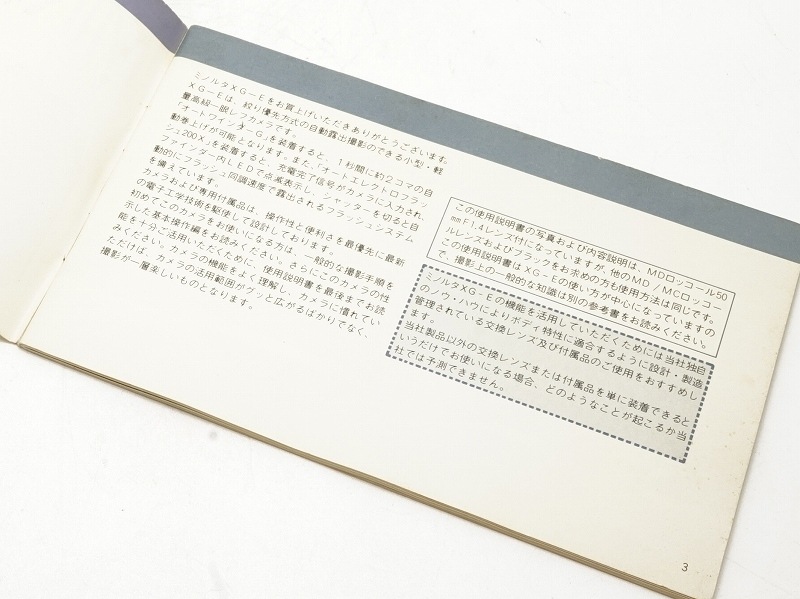 ミノルタXG—Eをお買上げいただきありがとうございます。
XG—Eは、絞り優先方式の自動露出撮影のできる小型・軽
量高級一眼レフカメラです。
「オートワインダーG」を装着すると、1秒間に約2コマの自
動巻上げが可能となります。また、「オートエレクトロフラッ
シュ200X」を装着すると、充電完了信号がカメラに入力され、
ファインダー内LEDで点滅表示し、シャッターを切ると自
動的にフラッシュ同調速度で露出されるフラッシュシステム
を備えています。
カメラおよび専用付属品は、操作性と便利さを最優先に最新
の電子工学技術を駆使して設計しております。
初めてこのカメラをお使いになる方は、一般的な撮影手順を
示した基本操作編をお読みください。さらにこのカメラの性
能を十分ご活用いただくために、使用説明書を最後までお読
みください。カメラの機能をよく理解し、カメラに慣れてい
ただけば、カメラの活用範囲がグッと広がるばかりでなく、
撮影が一層楽しいものとなります。
この使用説明書の写真および内容説明は、MDロッコール50
mmF1.4レンズ付になっていますが、他のMD/MCロッコー
ルレンズおよびブラックをお求めの方も使用方法は同じです。
この使用説明書はXG-Eの使い方が中心になっていますの
で、撮影上の一般的な知識は別の参考書をお読みください。
ミノルタXG-Eの機能を活用していただくためには当社独自
のノウ・ハウによりボディ特性に適合するように設計・製造
管理されている交換レンズ及び付属品のご使用をおすすめし
ます。
当社製品以外の交換レンズまたは付属品を単に装着できると
いうだけでお使いになる場合、どのようなことが起こるか当
社では予測できません。
3